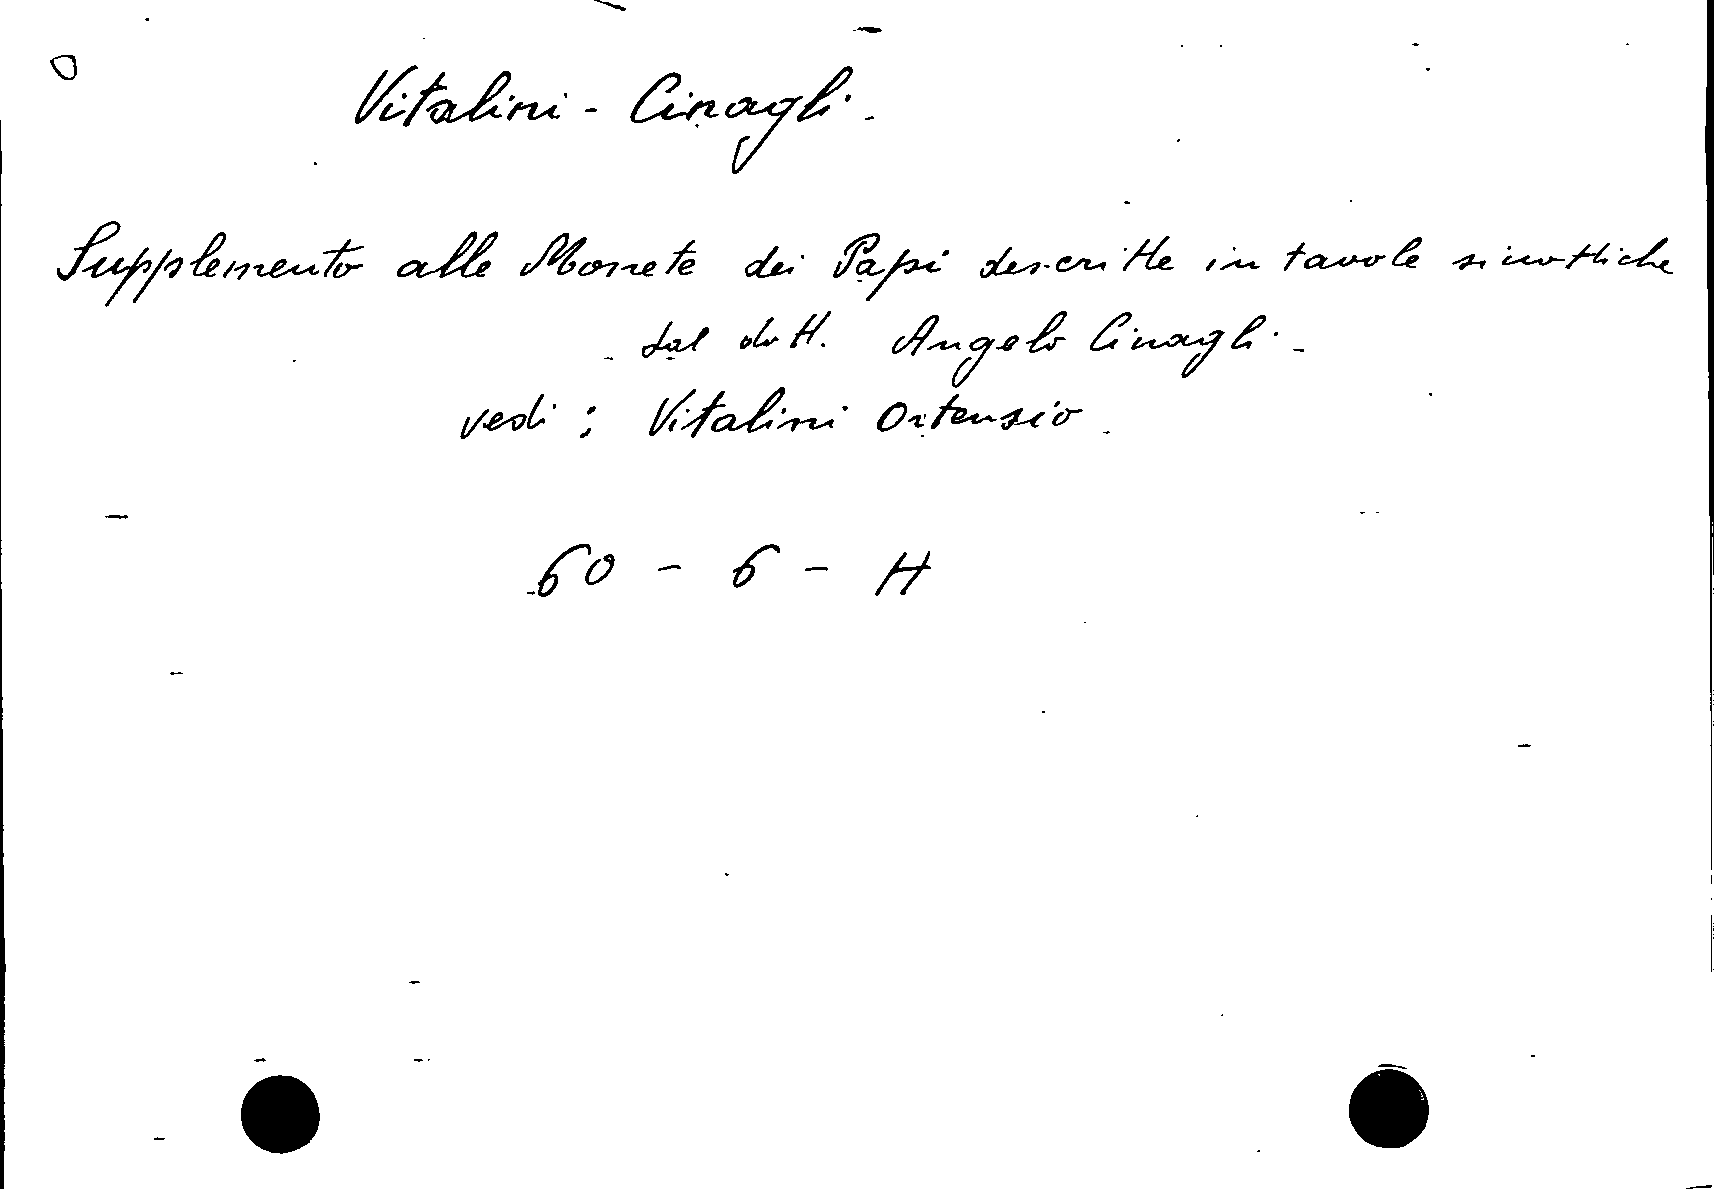 Vitalini - Cinagli.
Supplemento alle Monete dei Papi descritte in tavole sinottiche
dal dott. Angelo Cinagli.
vedi: Vitalini Ortensio
60 - 6 - H